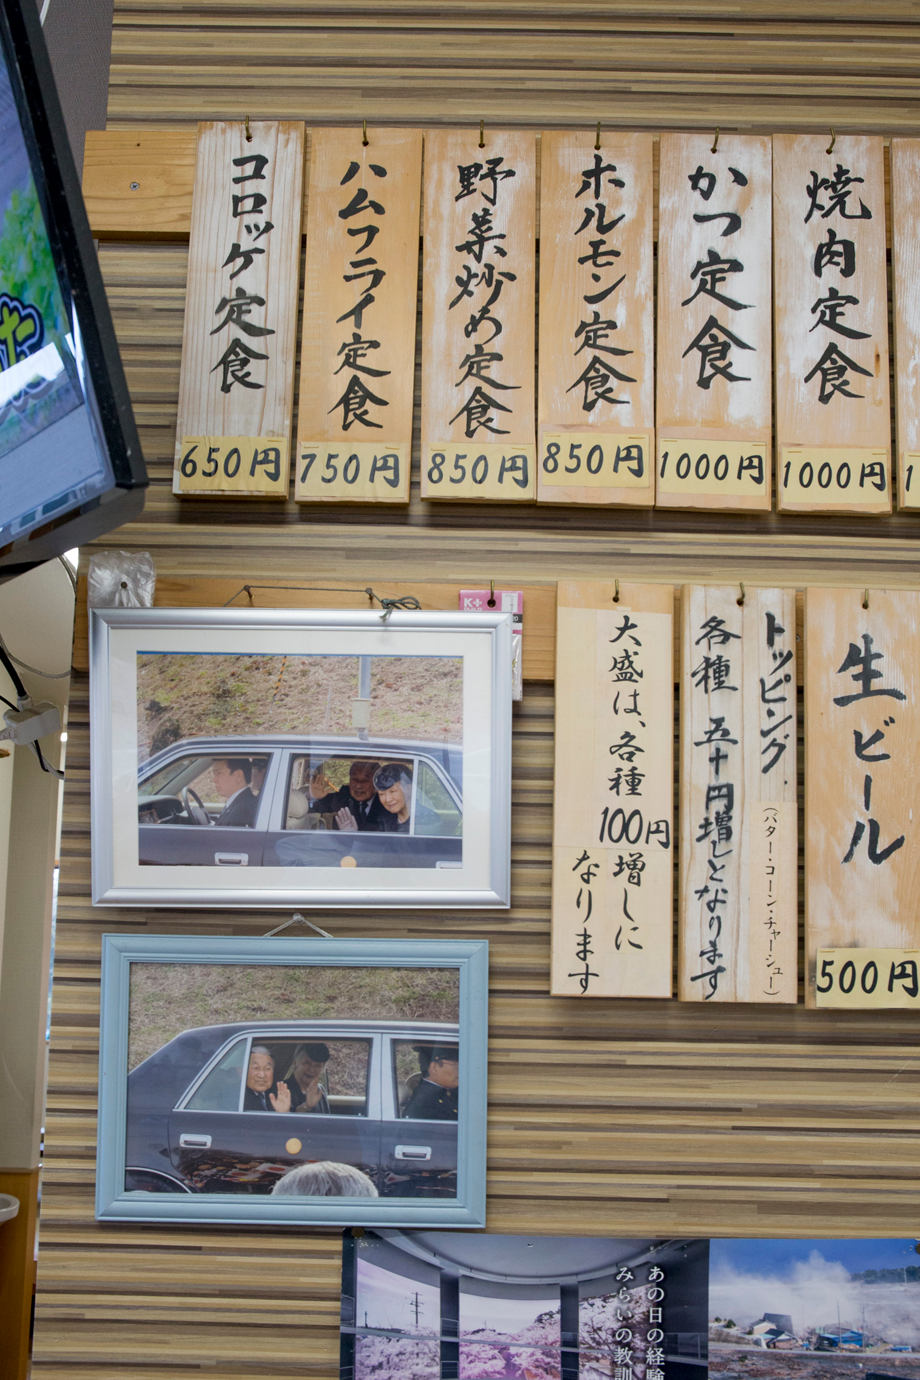 焼肉定食
1000円
かつ定食
1000円
ホルモン定食
850円
野菜炒め定食
850円
ハムフライ定食
750円
コロッケ定食
650円
生ビール
500円
トッピング(バター・コーン・チャーシュー)
各種 五十円増しとなります
大盛は、各種100円増しに
なります
K+
あの日の経験
みらいの教訓